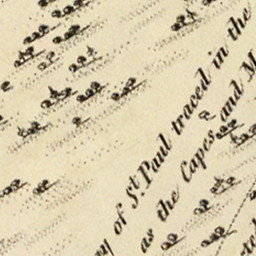 traced
y of St. Paul traced in the
as the Capes and M